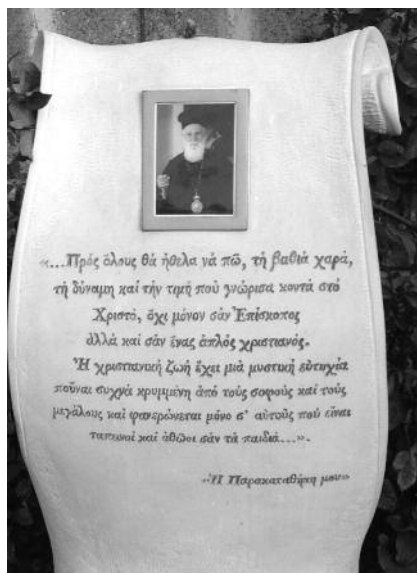 «...Πρός ὅλους θά ἤθελα νά πῶ, τή βαθιά χαρά,
τή δύναμη καί τήν τιμή πού γνώρισα κοντά στό
Χριστό, ὄχι μόνον σάν Ἐπίσκοπος
ἀλλά καί σάν ἕνας ἁπλός χριστιανός.
Ἡ χριστιανική ζωή ἔχει μιά μυστική εὐτυχία
ποὖναι συχνά κρυμμένη ἀπό τούς σοφούς καί τούς
μεγάλους καί φανερώνεται μόνο σ' αὐτούς πού εἶναι
ταπεινοί καί ἀθῶοι σάν τά παιδιά...».
«Ἡ Παρακαταθήκη μου»